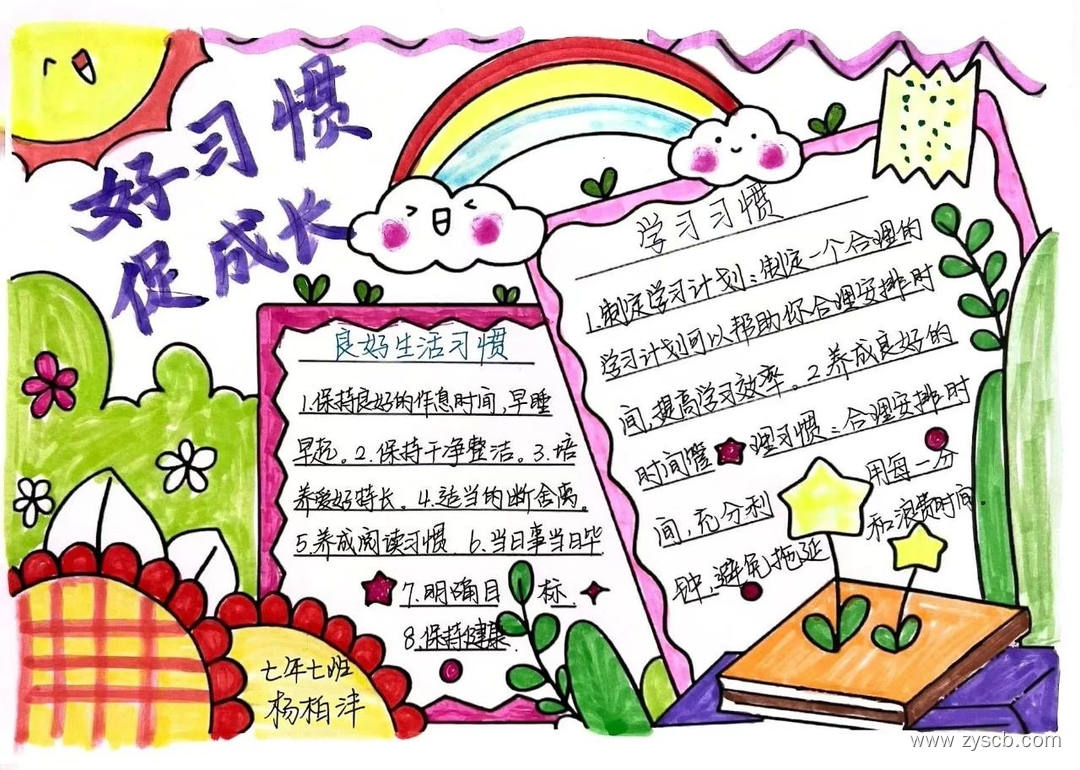 好习惯
促成长
良好生活习惯
1.保持良好的作息时间,早睡
早起。2.保持干净整洁。3.培
养爱好特长。4.适当的断舍离。
5.养成阅读习惯 6.当日事当日毕
7.明确目标.
8.保持健康.
学习习惯
1.制定学习计划:制定一个合理的
学习计划可以帮助你合理安排时
间,提高学习效率。2.养成良好的
时间管理习惯:合理安排时
间,充分利用每一分
钟,避免拖延和浪费时间.
七年七班
杨柏沣
www.zyscb.com